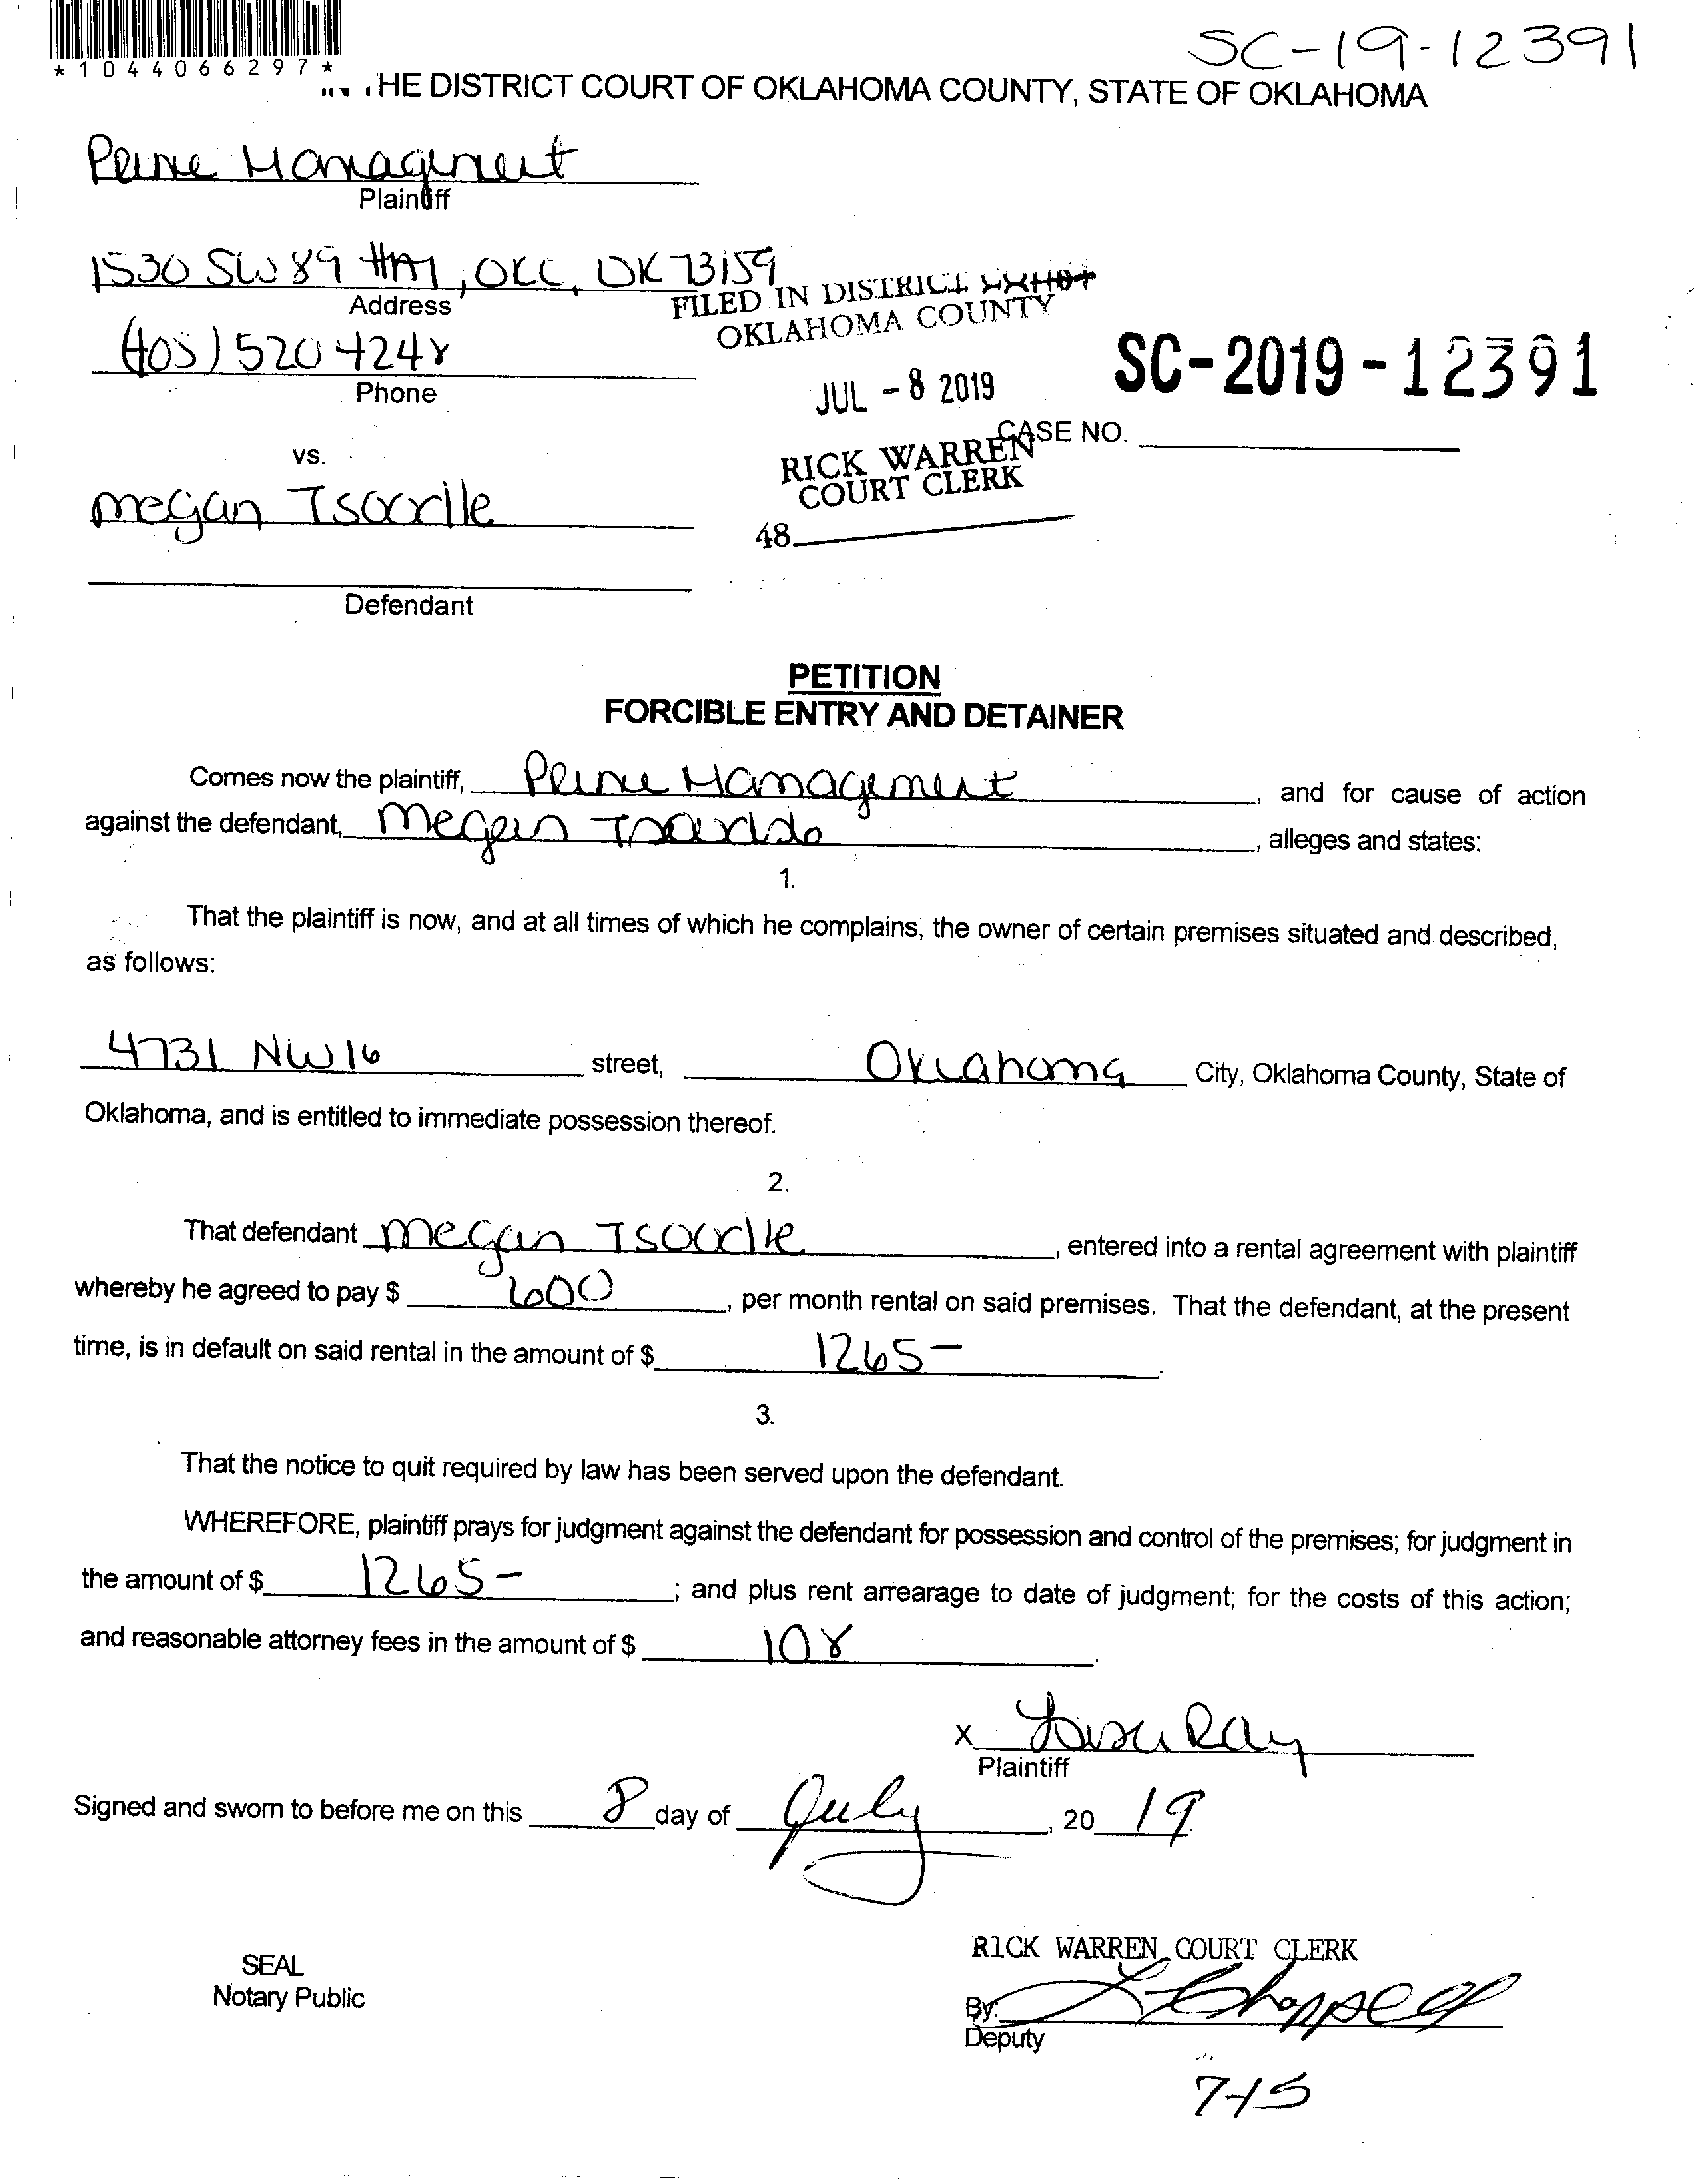 *1044066297*
SC-19-12391
HE DISTRICT COURT OF OKLAHOMA COUNTY, STATE OF OKLAHOMA
Management
Plaintiff
1530 SW 89 , OKC, OK 73159
Address
(405) 520 4248
Phone
FILED IN DISTRICT COURT
OKLAHOMA COUNTY
JUL - 8 2019
SC-2019-12391
CASE NO.
RICK WARREN
COURT CLERK
48
vs.
megan
Defendant
PETITION
FORCIBLE ENTRY AND DETAINER
Comes now the plaintiff, Management, and for cause of action
against the defendant, Megan , alleges and states:
1.
That the plaintiff is now, and at all times of which he complains, the owner of certain premises situated and described,
as follows:
4731 NW 16 street, Oklahoma City, Oklahoma County, State of
Oklahoma, and is entitled to immediate possession thereof.
2.
That defendant megan , entered into a rental agreement with plaintiff
whereby he agreed to pay $ 600, per month rental on said premises. That the defendant, at the present
time, is in default on said rental in the amount of $ 1265-.
3.
That the notice to quit required by law has been served upon the defendant.
WHEREFORE, plaintiff prays for judgment against the defendant for possession and control of the premises; for judgment in
the amount of $ 1265-; and plus rent arrearage to date of judgment; for the costs of this action;
and reasonable attorney fees in the amount of $ 108.
x Ray
Plaintiff
Signed and sworn to before me on this 8 day of July, 20 19
SEAL
Notary Public
RICK WARREN COURT CLERK
By: Chappell
Deputy
7-15